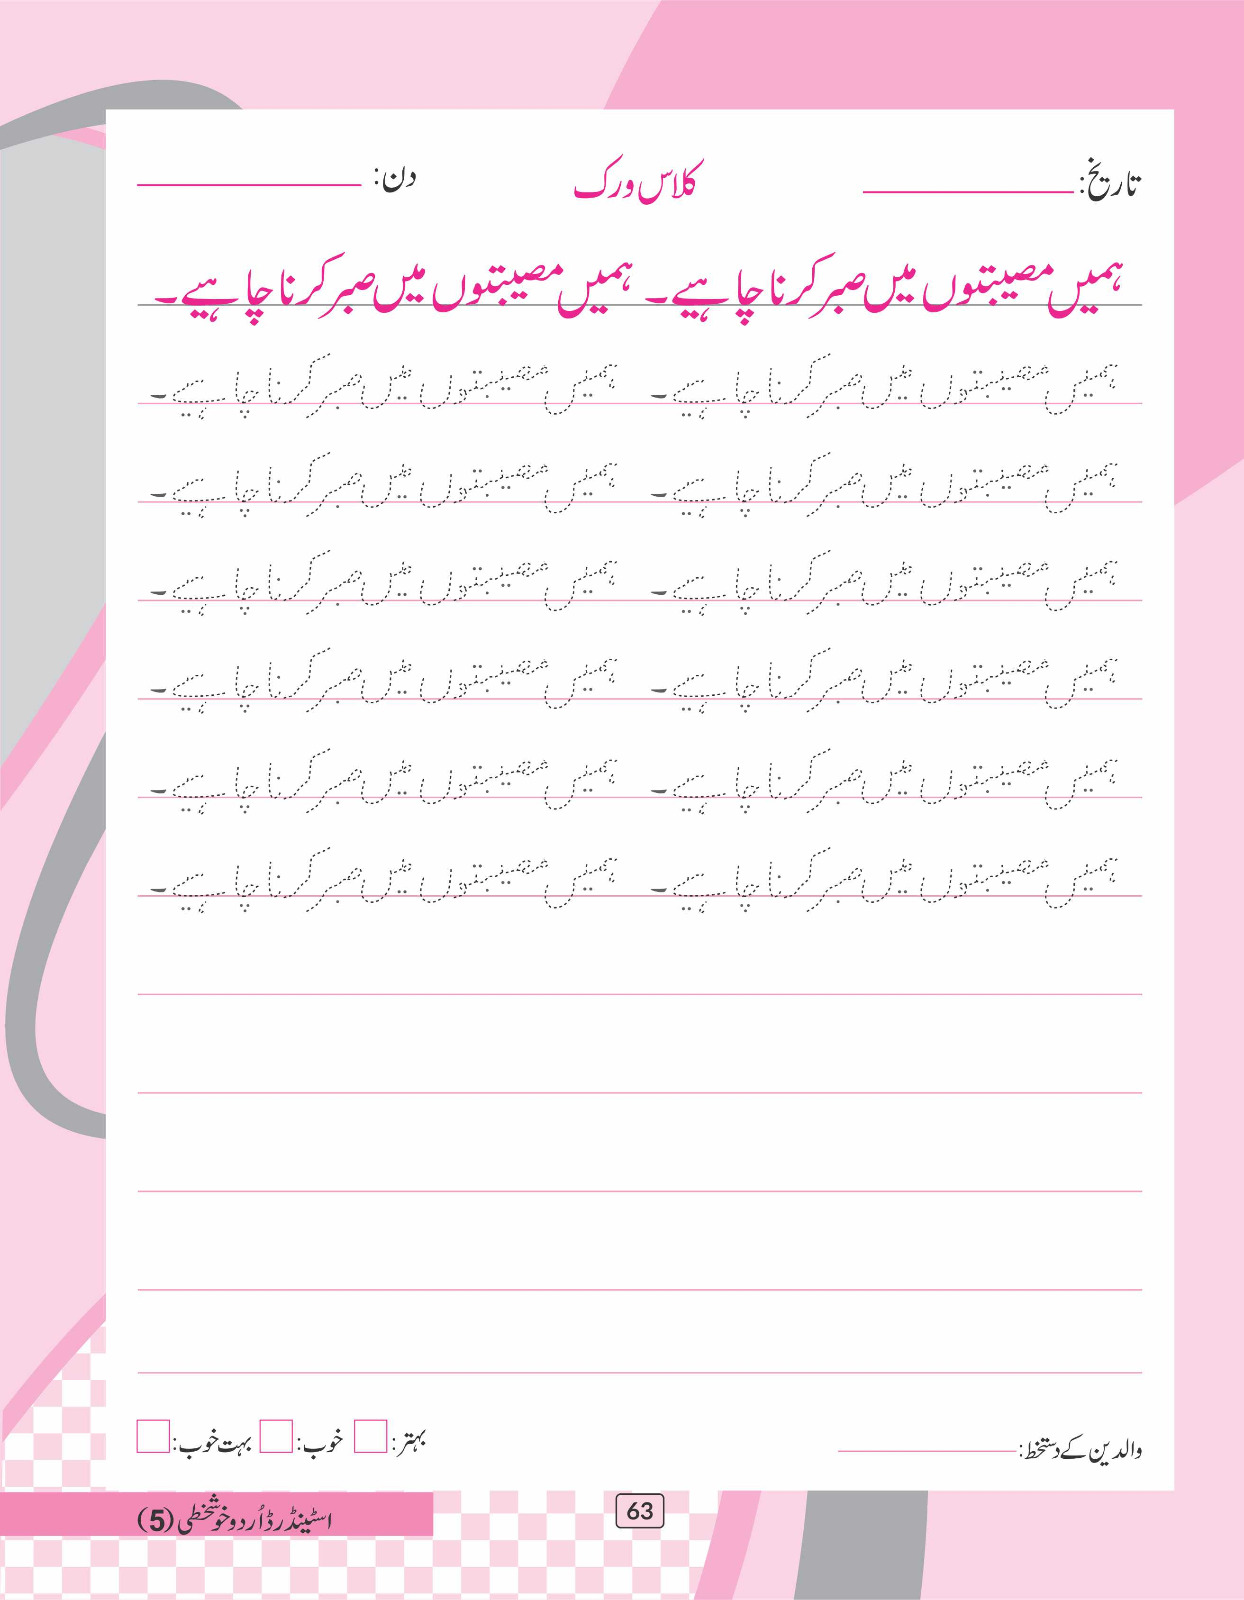 تاریخ: کلاس ورک دن:
ہمیں مصیبتوں میں صبر کرنا چاہیے۔ ہمیں مصیبتوں میں صبر کرنا چاہیے۔
ہمیں مصیبتوں میں صبر کرنا چاہیے۔ ہمیں مصیبتوں میں صبر کرنا چاہیے۔
ہمیں مصیبتوں میں صبر کرنا چاہیے۔ ہمیں مصیبتوں میں صبر کرنا چاہیے۔
ہمیں مصیبتوں میں صبر کرنا چاہیے۔ ہمیں مصیبتوں میں صبر کرنا چاہیے۔
ہمیں مصیبتوں میں صبر کرنا چاہیے۔ ہمیں مصیبتوں میں صبر کرنا چاہیے۔
ہمیں مصیبتوں میں صبر کرنا چاہیے۔ ہمیں مصیبتوں میں صبر کرنا چاہیے۔
ہمیں مصیبتوں میں صبر کرنا چاہیے۔ ہمیں مصیبتوں میں صبر کرنا چاہیے۔
والدین کے دستخط: بہتر: خوب: بہت خوب:
63
اسٹینڈرڈ اُردو خوشخطی (5)